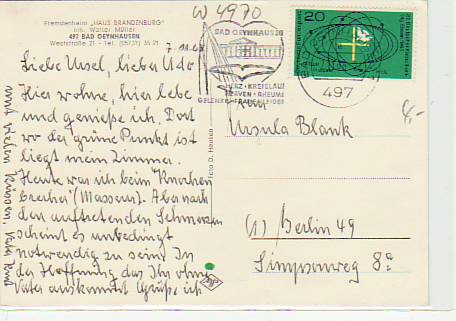 W 4970
Fremdenheim „HAUS BRANDENBURG"
Inh. Walter Müller
497 BAD OEYNHAUSEN
Weststraße 21 - Tel. (05731) 35 21
7.11.68
Liebe Ursel, lieber Udo
Hier wohne, hier lebe
und genieße ich. Dort
wo der grüne Punkt ist
liegt mein Zimmer.
Heute war ich beim Knochen
brecher (Masseur). Aber nach
den auftretenden Schmerzen
scheint es unbedingt
notwendig zu sein In
der Hoffnung das Ihr ohne
Vater auskommt Grüße ich
und vielen Küssen, Vater
Foto D. Hauten
BAD OEYNHAUSEN
HERZ - KREISLAUF
NERVEN - RHEUMA
GELENK - FRAUENLEIDEN
20
497
4,-
Frau
Ursula Blank
(1) Berlin 49
Simpsonweg 8a